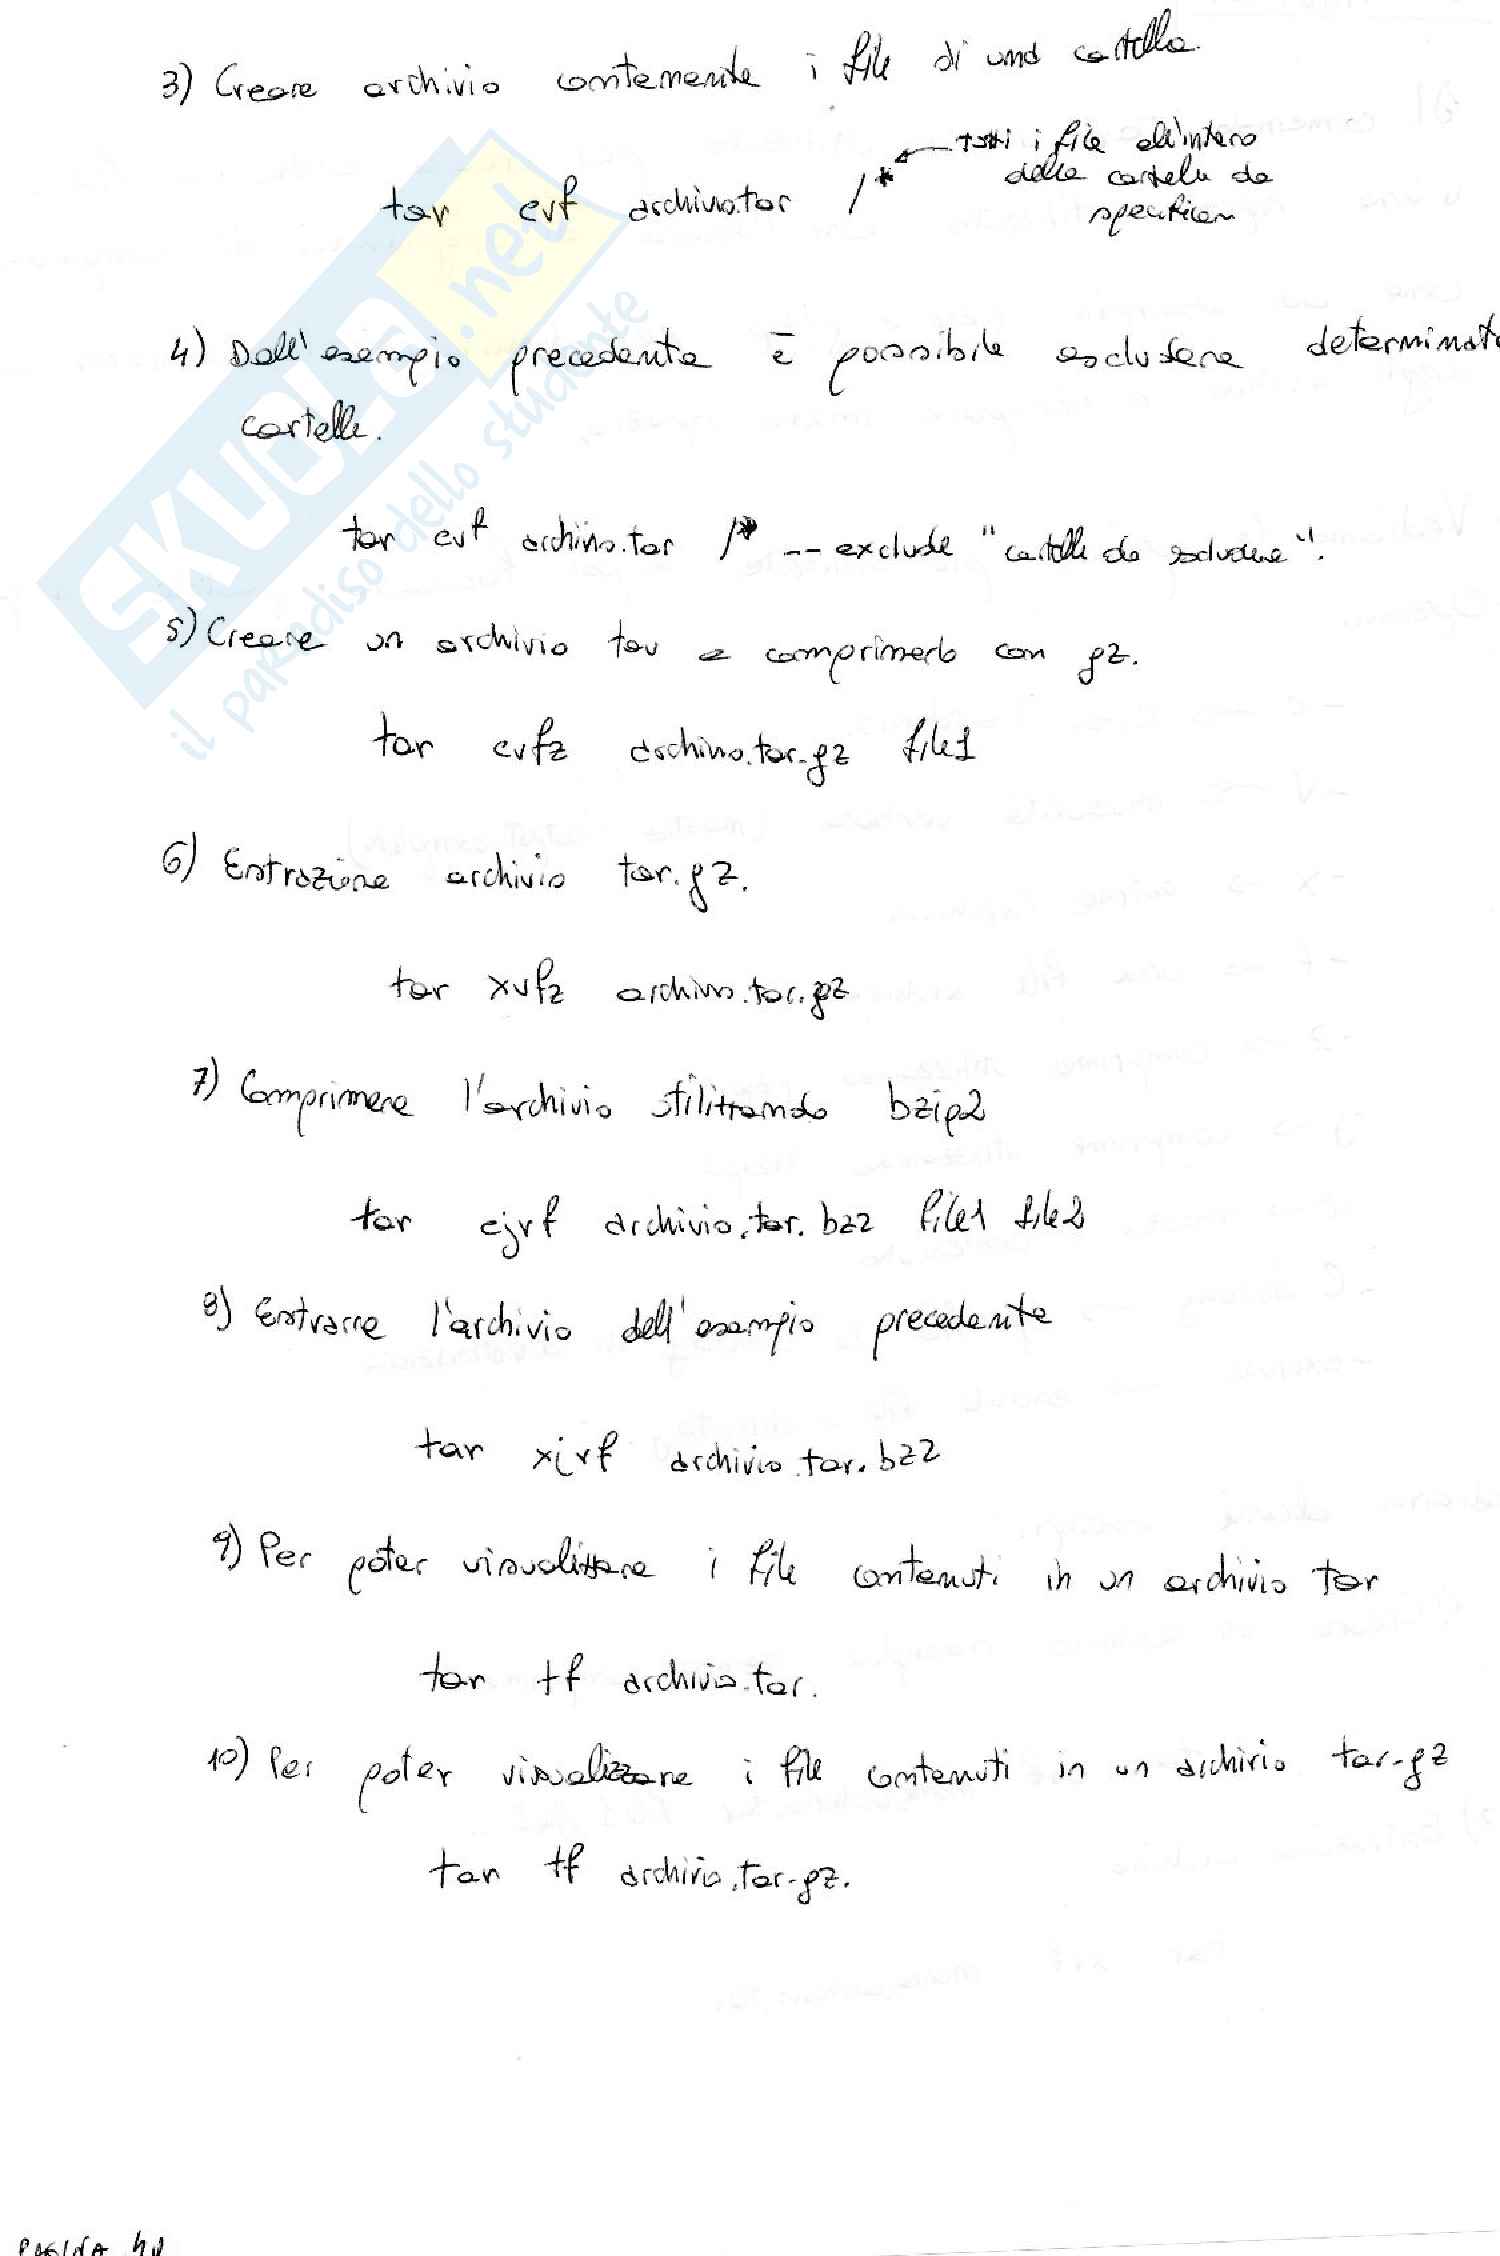 3) Creare archivio contenente i file di una cartella.
tutti i file all'interno
della cartella da
specificare
tar cvf archivio.tar /*
4) Dall'esempio precedente è possibile escludere determinate
cartelle.
tar cvf archivio.tar /* --exclude "cartelle da escludere".
5) Creare un archivio tar e comprimerlo con gz.
tar cvfz archivio.tar.gz file1
6) Estrazione archivio tar.gz.
tar xvfz archivio.tar.gz
7) Comprimere l'archivio utilizzando bzip2
tar cjvf archivio.tar.bz2 file1 file2
8) Estrarre l'archivio dell'esempio precedente
tar xjvf archivio.tar.bz2
9) Per poter visualizzare i file contenuti in un archivio tar
tar tf archivio.tar.
10) Per poter visualizzare i file contenuti in un archivio tar.gz
tar tf archivio.tar.gz.
PAGINA
SKUOLA.net
il paradiso dello studente